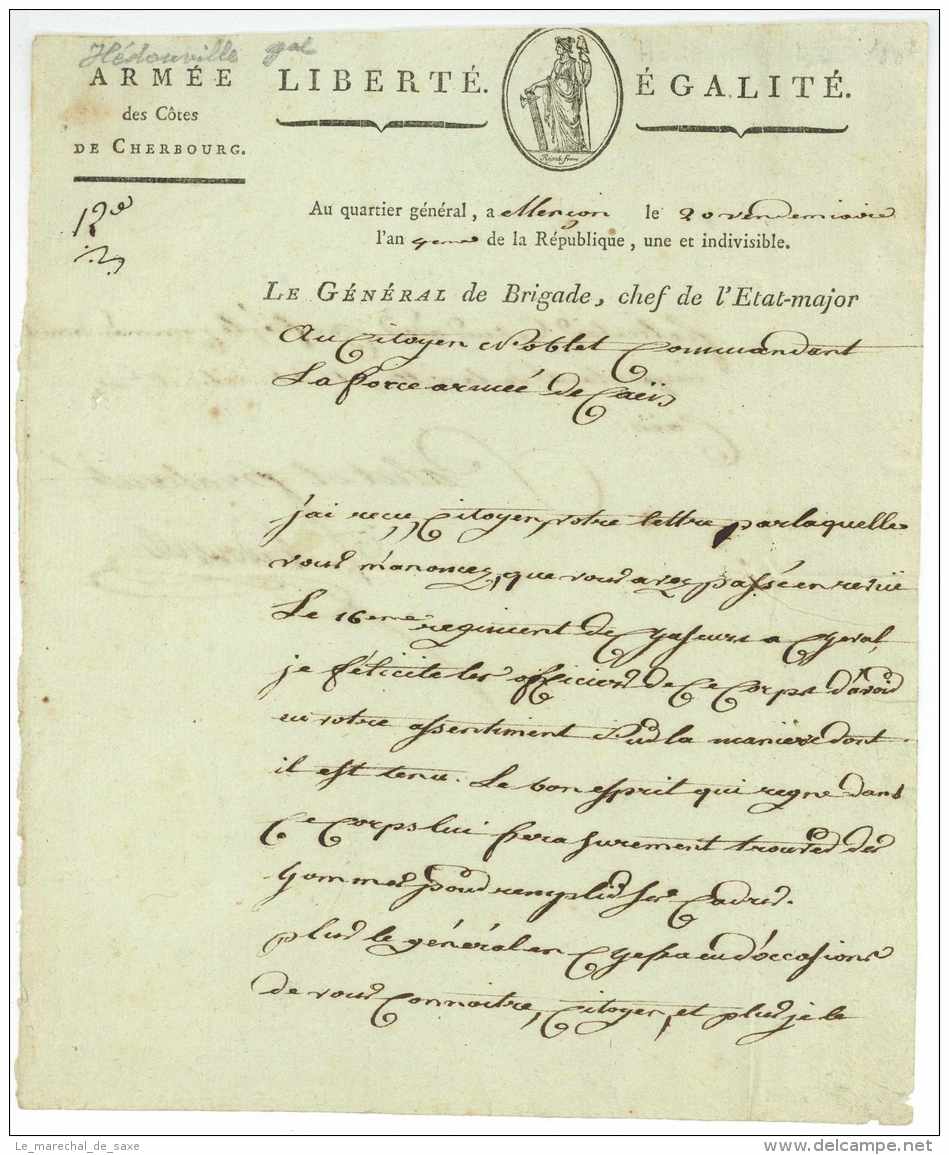 Hédouville gal
ARMÉE
des Côtes
DE CHERBOURG.
LIBERTÉ. ÉGALITÉ.
Au quartier général, a Alençon le 20 vendemiaire
l'an 4eme de la République, une et indivisible.
LE GÉNÉRAL de Brigade, chef de l'Etat-major
Au Citoyen Noblet Commandant
La force armée de Caën
j'ai reçu, Citoyen, votre lettre par laquelle
vous m'anoncez, que vous avez passé en revüe
Le 16eme regiment de Chaseurs a Cheval,
je félicite les officiers de Ce Corps d'avoir
eu votre assentiment sur la maniere dont
il est tenu. Le bon esprit qui regne dans
Ce Corps lui fera surement trouver des
hommes pour remplir ses Cadres.
plus le général en Chef a eu d'occasions
de vous Connoitre, Citoyen, et plus je le
Le_marechal_de_saxe
www.delcampe.net